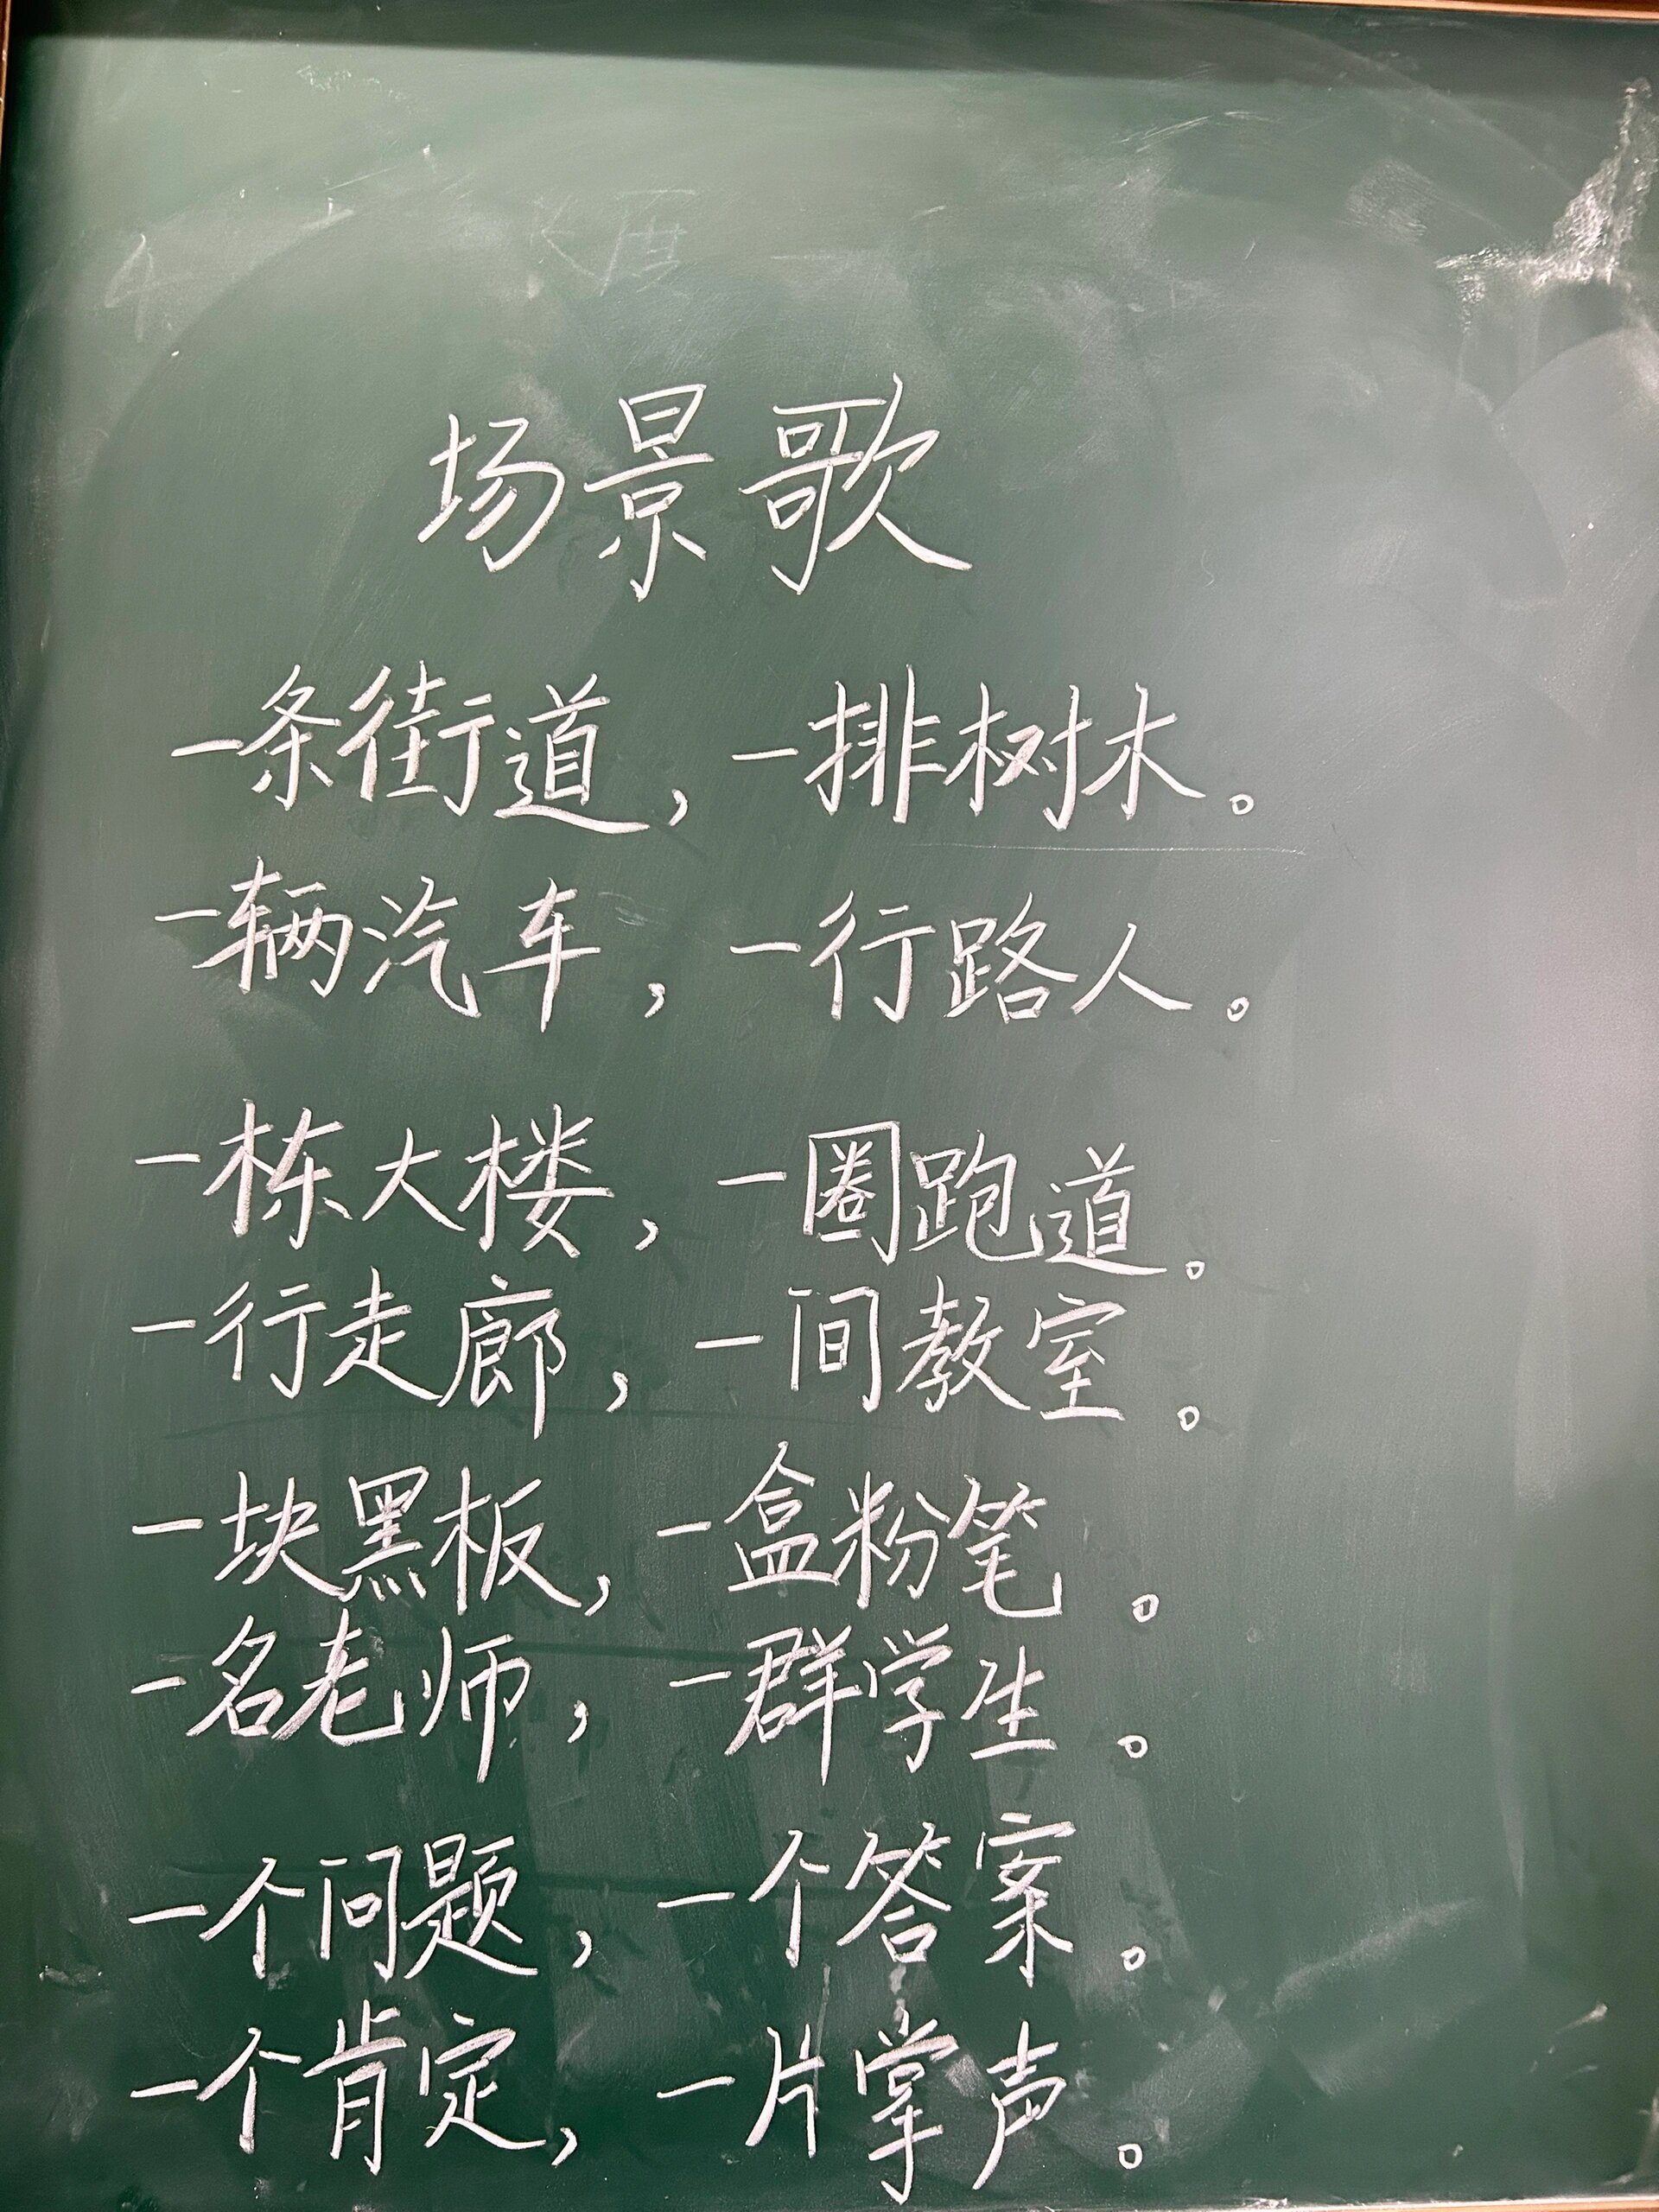 场景歌
一条街道，一排树木。
一辆汽车，一行路人。
一栋大楼，一圈跑道。
一行走廊，一间教室。
一块黑板，一盒粉笔。
一名老师，一群学生。
一个问题，一个答案。
一个肯定，一片掌声。